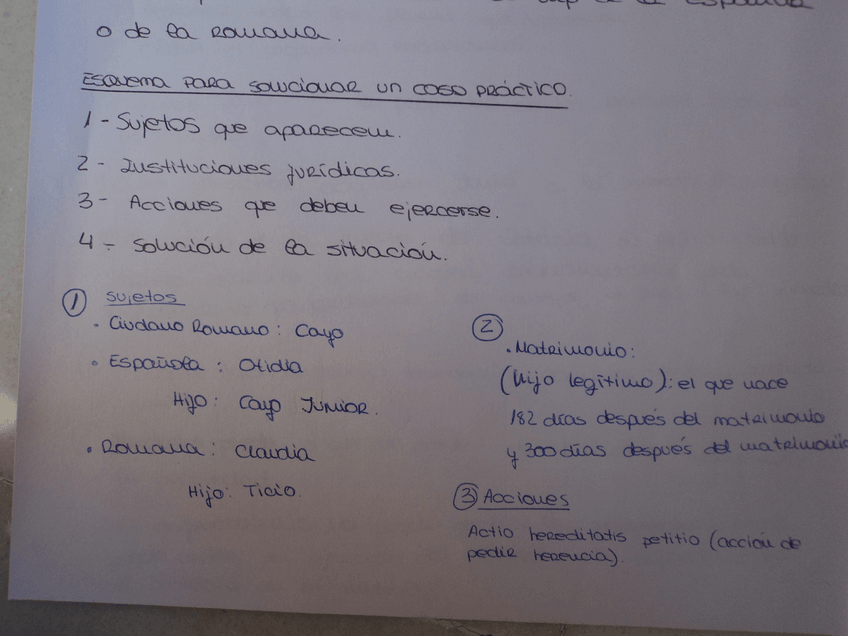 de la española
o de la romana.
ESQUEMA PARA SOLUCIONAR UN CASO PRÁCTICO.
1 - Sujetos que aparecen.
2 - Instituciones jurídicas.
3 - Acciones que deben ejercerse.
4 - Solución de la situación.
① Sujetos
· Ciudano Romano: Cayo
· Española: Otidia
Hijo: Cayo Junior.
· Romana: Claudia
Hijo: Ticio.
②
· Matrimonio:
(Hijo legítimo): el que nace
182 días después del matrimonio
y 300 días después del matrimonio
③ Acciones
Actio hereditatis petitio (acción de
pedir herencia).